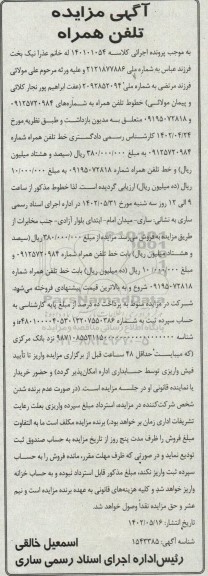 آگهی مزایده
تلفن همراه
به موجب پرونده اجرائی کلاسه ۱۴۰۱۰۱۰۵۴ له خانم عذرا نیک بخت
فرزند عباس به شماره ملی ۲۱۲۱۸۷۷۸۸۶ و علیه ورثه مرحوم علی مولائی
فرزند مرتضی به شماره ملی ۲۰۹۲۸۵۲۰۹۴ (عفت ابراهیم پور نجار کلائی
و پیمان مولائی) خطوط تلفن همراه به شماره‌های ۰۹۱۲۵۷۲۰۹۸۴ و
۰۹۱۹۵۰۷۲۸۱۸ متعلق به مدیون بازداشت و طبق نظریه مورخ
۱۴۰۲/۰۴/۲۴ کارشناس رسمی دادگستری خط تلفن همراه شماره
۰۹۱۲۵۷۲۰۹۸۴ به مبلغ ۳۸۰/۰۰۰/۰۰۰ ریال (سیصد و هشتاد میلیون
ریال) و خط تلفن همراه شماره ۰۹۱۹۵۰۷۲۸۱۸ به مبلغ ۱۰/۰۰۰/۰۰۰
ریال (ده میلیون ریال) ارزیابی گردیده است. لذا خطوط مذکور از ساعت
۹ الی ۱۲ روز سه شنبه مورخ ۱۴۰۲/۰۵/۳۱ در اداره اجرای اسناد رسمی
ساری به نشانی: ساری- میدان امام- ابتدای بلوار آزادی- جنب مخابرات از
طریق مزایده به فروش میرسد. مزایده از مبلغ ۳۸۰/۰۰۰/۰۰۰ ریال (سیصد
و هشتاد میلیون ریال) بابت خط تلفن همراه شماره ۰۹۱۲۵۷۲۰۹۸۴ و
مبلغ ۱۰/۰۰۰/۰۰۰ ریال (ده میلیون ریال) بابت خط تلفن همراه شماره
۰۹۱۹۵۰۷۲۸۱۸ شروع و به بالاترین قیمت پیشنهادی فروخته می‌شود.
شرکت در مزایده منوط به پرداخت ده درصد از مبلغ پایه کارشناسی به
حساب سپرده ثبت به شماره
شناسه نزد بانک مرکزی
(که میبایست حداقل ۴۸ ساعت قبل از برگزاری مزایده واریز تا تأیید
فیش واریزی توسط حسابداری اداره امکان‌پذیر گردد) و حضور خریدار
یا نماینده قانونی او در جلسه مزایده است. (در صورت عدم برنده شدن
شخص شرکت‌کننده در مزایده، استرداد مبلغ سپرده واریزی بعلت رعایت
تشریفات اداری زمان بر خواهد بود) برنده مزایده مکلف است ما به التفاوت
مبلغ فروش را ظرف مدت پنج روز از تاریخ مزایده به حساب صندوق ثبت
تودیع نماید و در صورتی که ظرف مهلت مقرر، مانده فروش را به حساب
سپرده ثبت واریز نکند، مبلغ مذکور قابل استرداد نبوده و به حساب خزانه
واریز خواهد شد و کلیه هزینه‌های قانونی به عهده برنده مزایده است و نیم
عشر و حق مزایده نقداً وصول خواهد شد.
تاریخ انتشار: ۱۴۰۲/۰۵/۱۶
شناسه آگهی: ۱۵۴۳۳۸۵
اسمعیل خالقی
رئیس اداره اجرای اسناد رسمی ساری